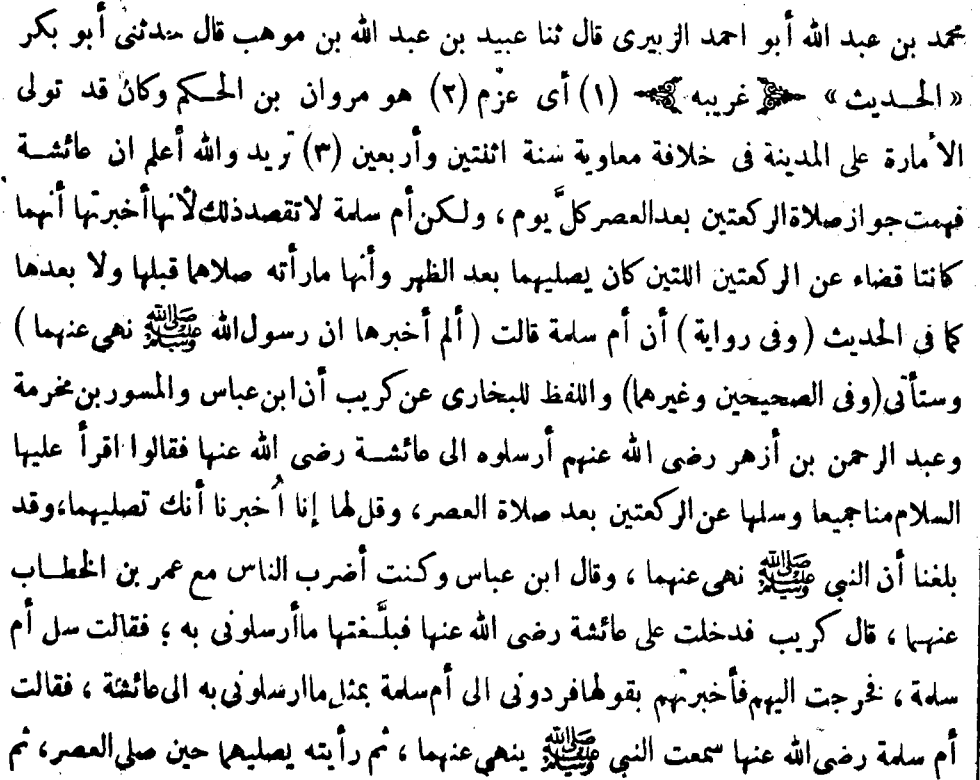 محمد بن عبد الله أبو احمد الزبيرى قال ثنا عبيد بن عبد الله بن موهب قال حدثنى أبو بكر
« الحـديث » غريبه (١) أى عزم (٢) هو مروان بن الحـكم وكان قد تولى
الأمارة على المدينة فى خلافة معاوية سنة اثنتين وأربعين (٣) تريد والله أعلم ان عائشـة
فهمت جواز صلاة الركعتين بعد العصر كلَّ يوم ، ولـكن أم سلمة لا تقصد ذلك لأنها أخبرتها أنهما
كانتا قضاء عن الركعتين اللتين كان يصليهما بعد الظهر وأنها مارأته صلاهما قبلها ولا بعدها
كما فى الحديث ( وفى رواية ) أن أم سلمة قالت ( ألم أخبرها ان رسول الله ﷺ نهى عنهما )
وستأتى (وفى الصحيحين وغيرهما) واللفظ للبخارى عن كريب أن ابن عباس والمسور بن مخرمة
وعبد الرحمن بن أزهر رضى الله عنهم أرسلوه الى عائشـة رضى الله عنها فقالوا اقرأ عليها
السلام منا جميعا وسلها عن الركعتين بعد صلاة العصر ، وقل لها إنا أُخبرنا أنك تصليهما، وقد
بلغنا أن النبى ﷺ نهى عنهما ، وقال ابن عباس وكنت أضرب الناس مع عمر بن الخطـاب
عنهـما ، قال كريب فدخلت على عائشة رضى الله عنها فبلَّـغتها ماأرسلونى به ؛ فقالت سل أم
سلمة ، فخرجت اليهم فأخبرتهم بقولها فردونى الى أم سلمة بمثل ماارسلونى به الى عائشة ، فقالت
أم سلمة رضى الله عنها سمعت النبى ﷺ ينهى عنهما ، ثم رأيته يصليهما حين صلى العصر ، ثم